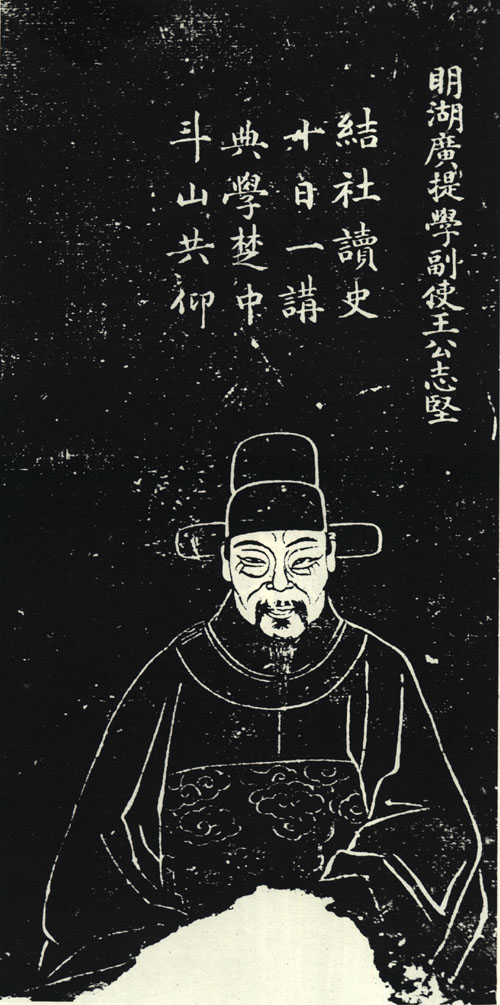 明湖廣提學副使王公志堅
結社讀史
廿日一講
典學楚中
斗山共仰